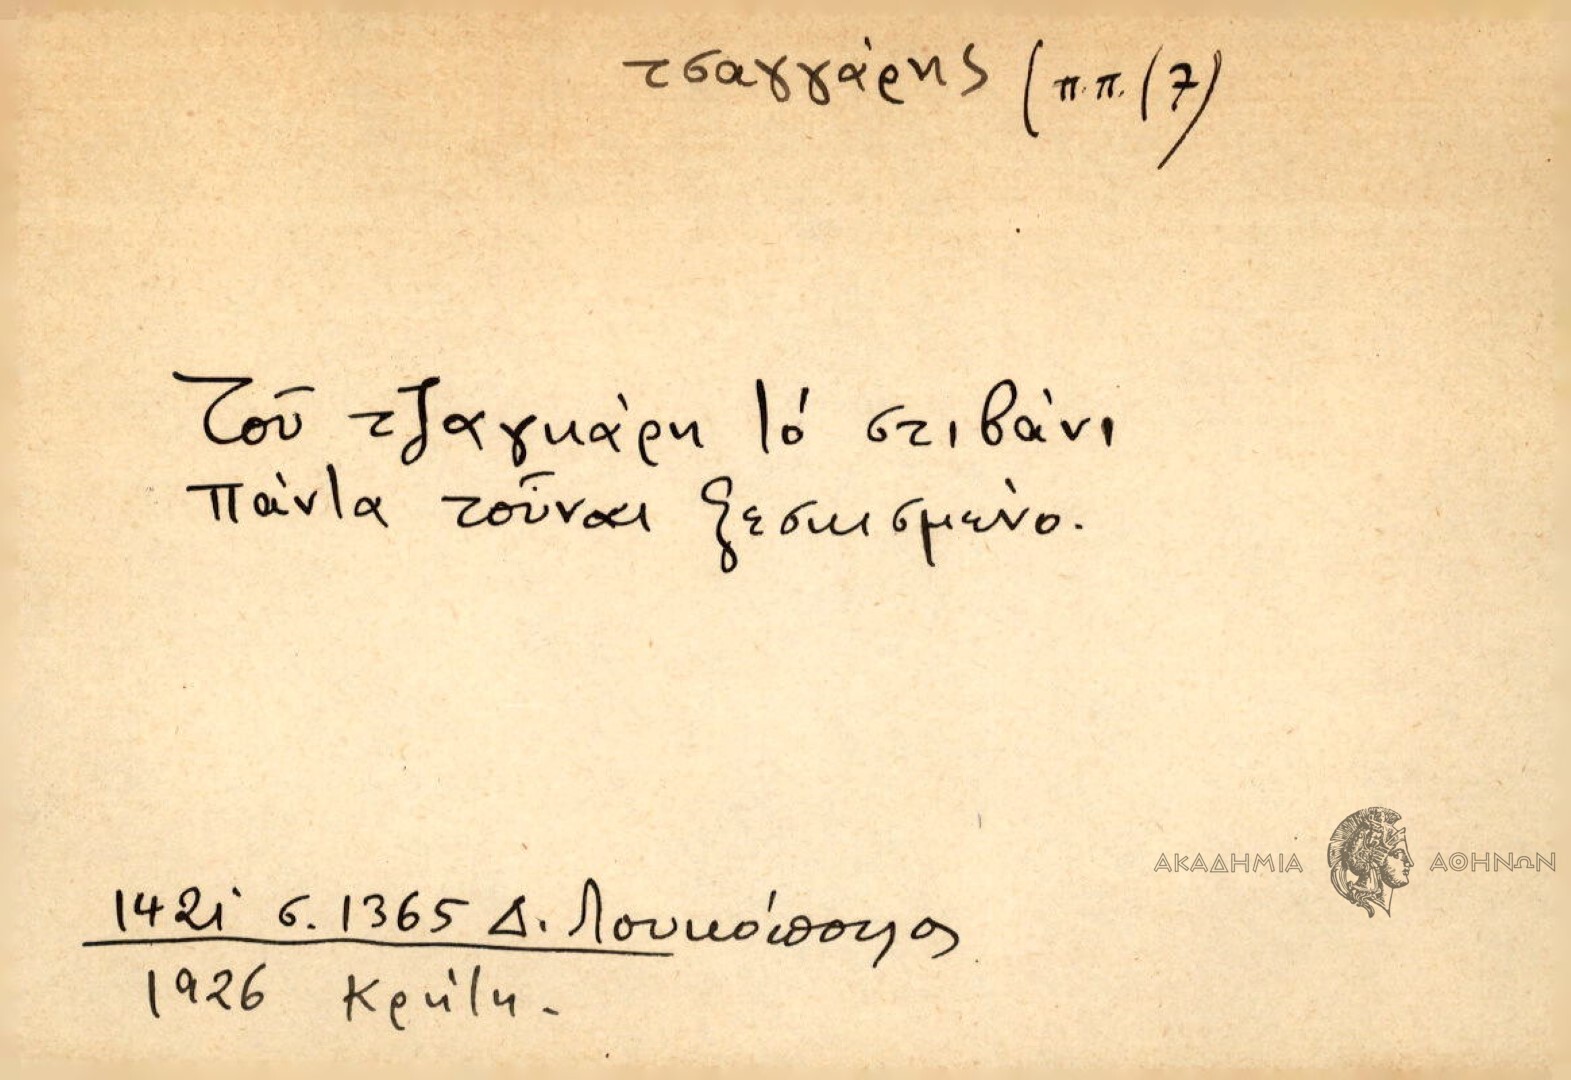 τσαγγάρης (π.π. (7)
Τοῦ τζαγκάρη τό στιβάνι
πάντα τοὖναι ξεσκισμένο.
ΑΚΑΔΗΜΙΑ ΑΘΗΝΩΝ
1421 σ. 1365 Δ. Λουκόπουλος
1926 Κρήτη.